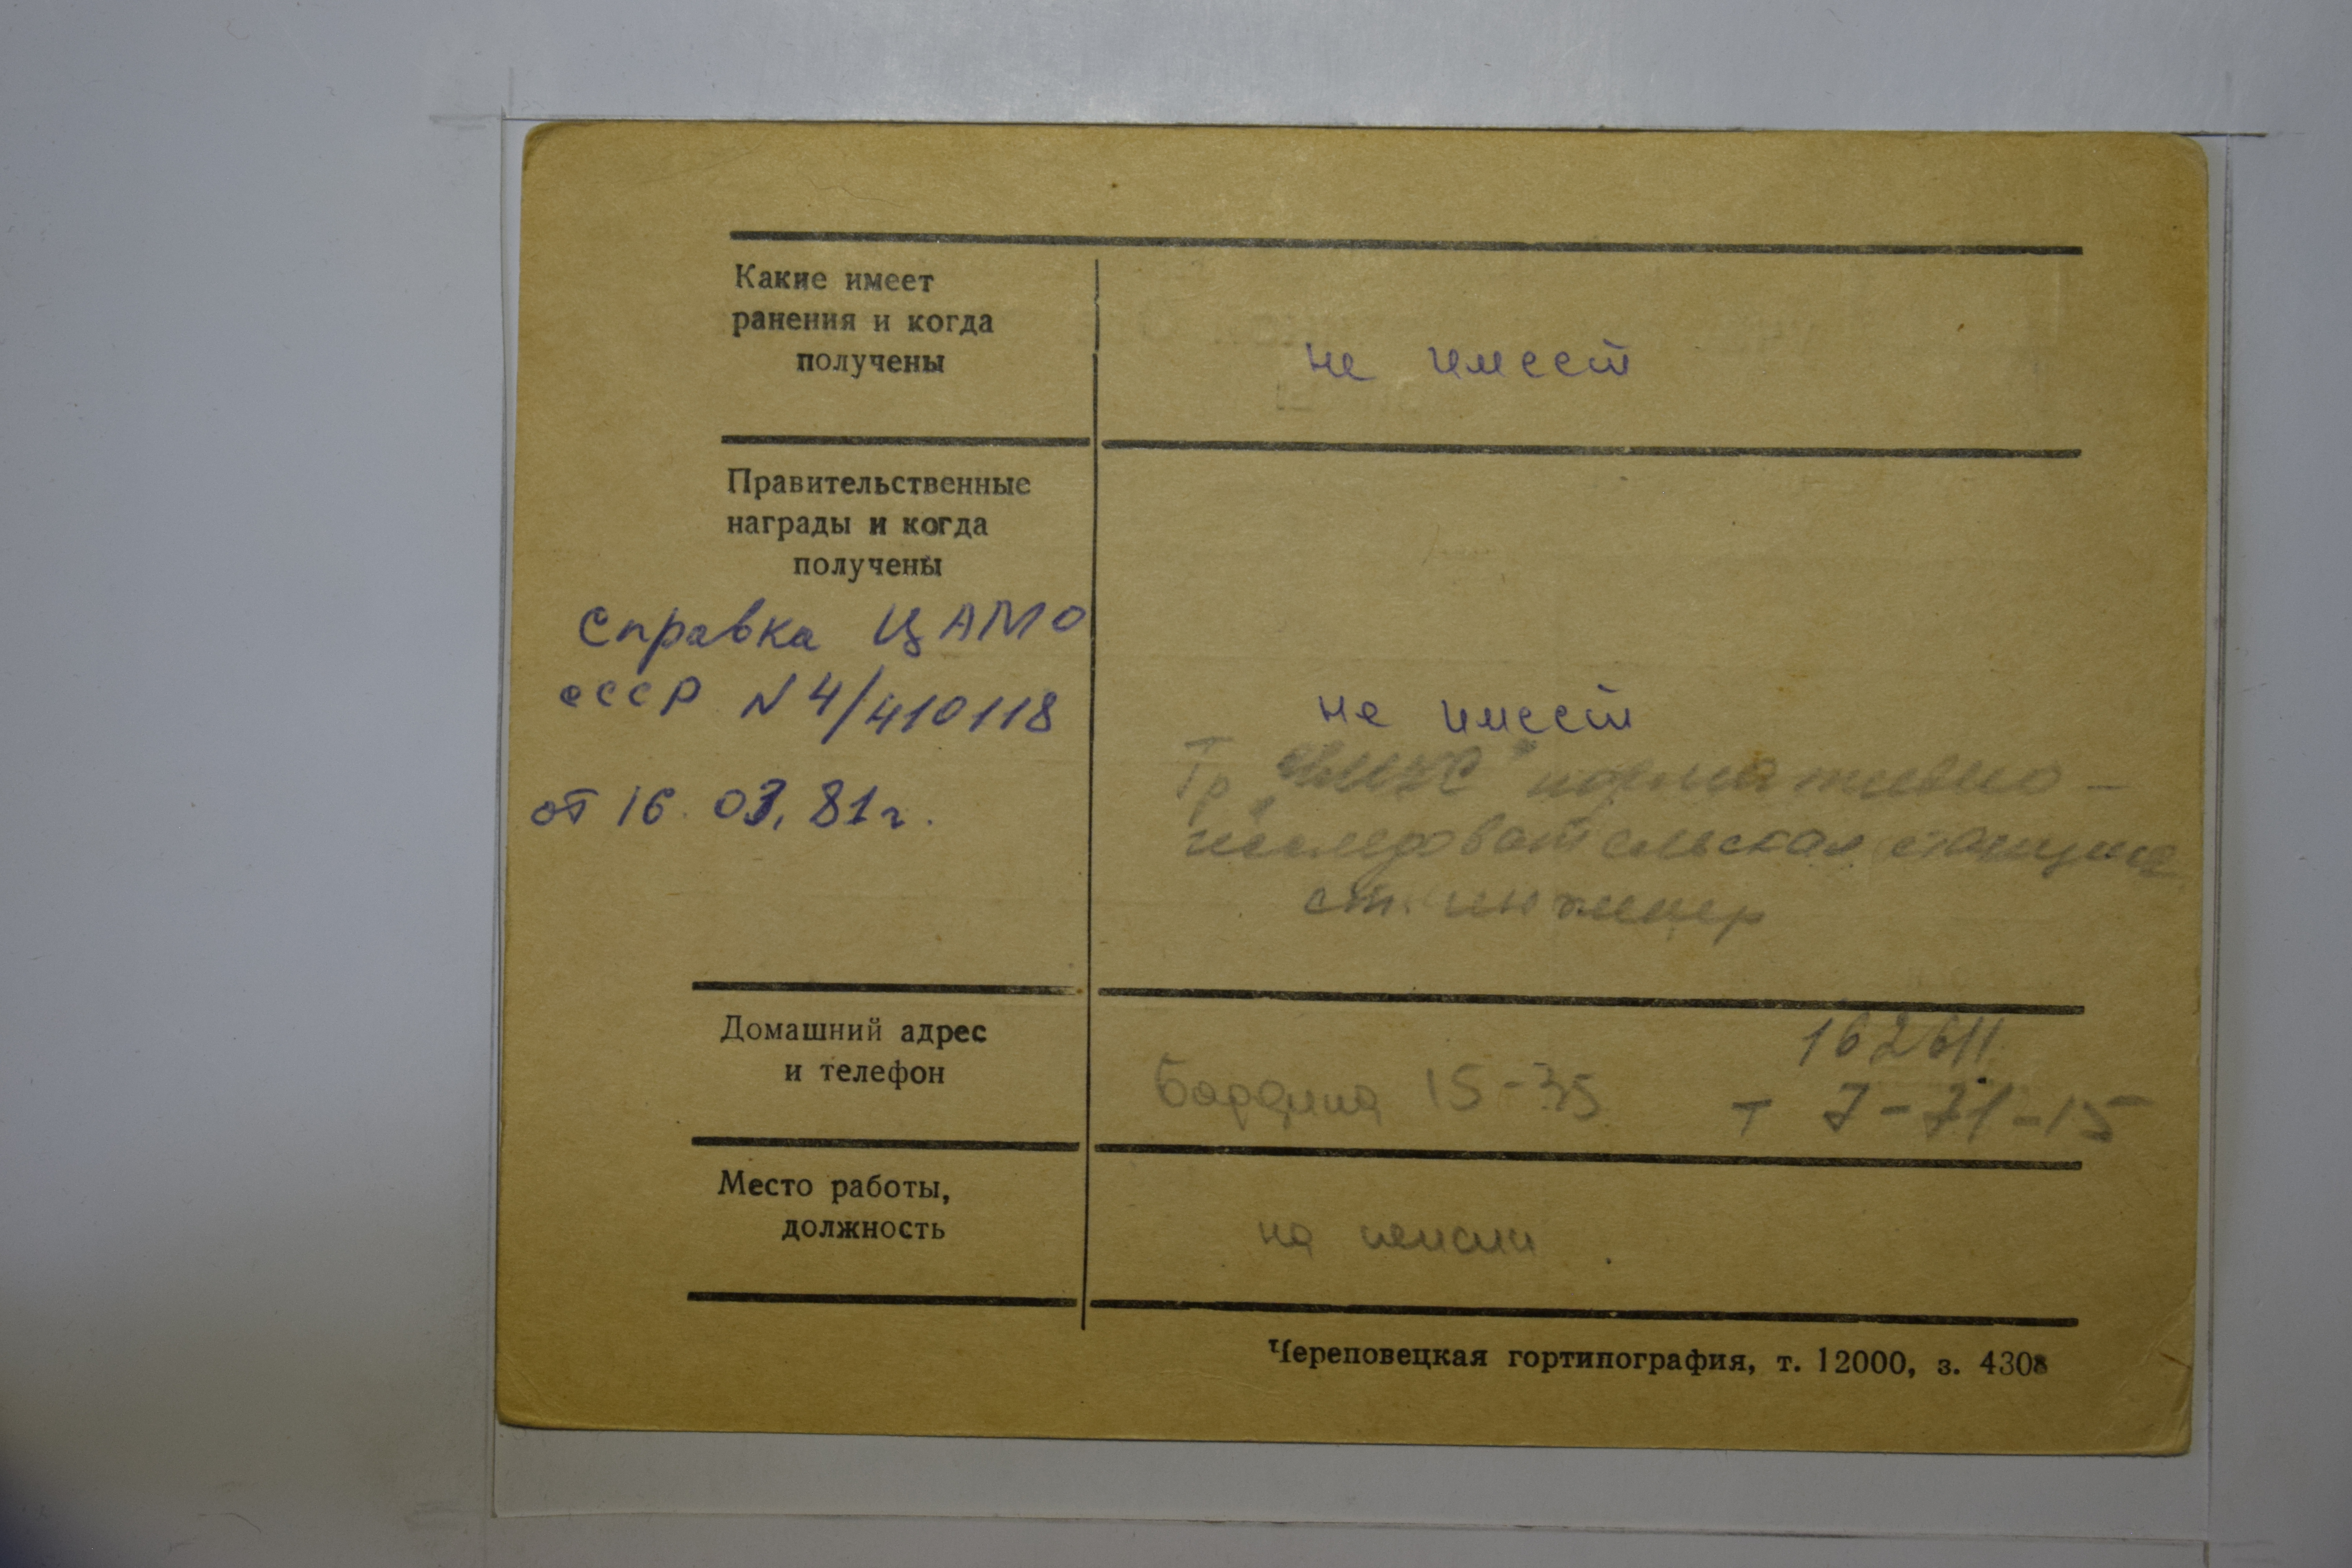 Какие имеет
ранения и когда
получены
не имеет
Правительственные
награды и когда
получены
Справка ЦАМО
СССР N 4/410118
от 16.03.81г.
не имеет
Тр. нормативно-
исследовательская станция
ст. инженер
Домашний адрес
и телефон
162611
Бардина 15-35 т 7-71-15
Место работы,
должность
на пенсии.
Череповецкая гортипография, т. 12000, з. 4308